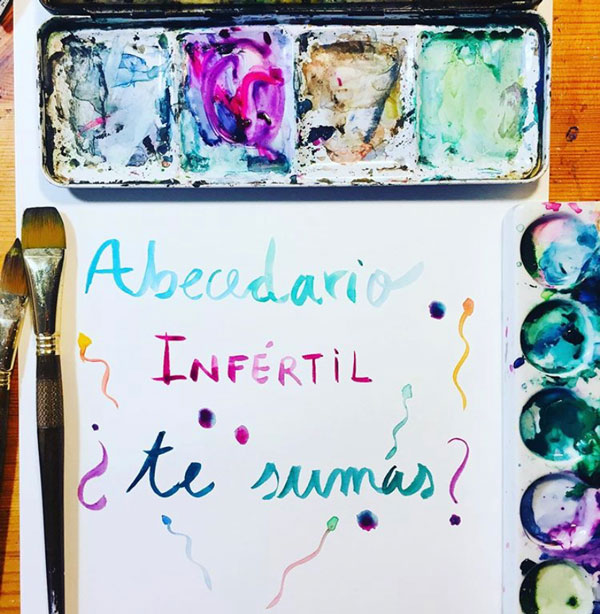 Abecedario
INFÉRTIL
¿te sumás?